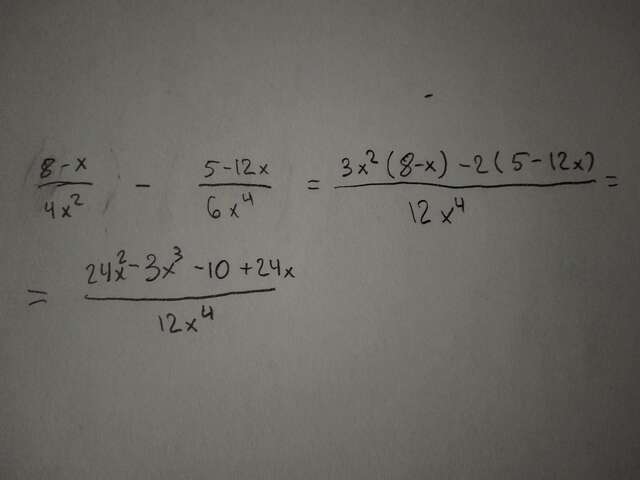 8-x/4x² - 5-12x/6x⁴ = 3x²(8-x)-2(5-12x)/12x⁴ =
= 24x²-3x³-10+24x/12x⁴